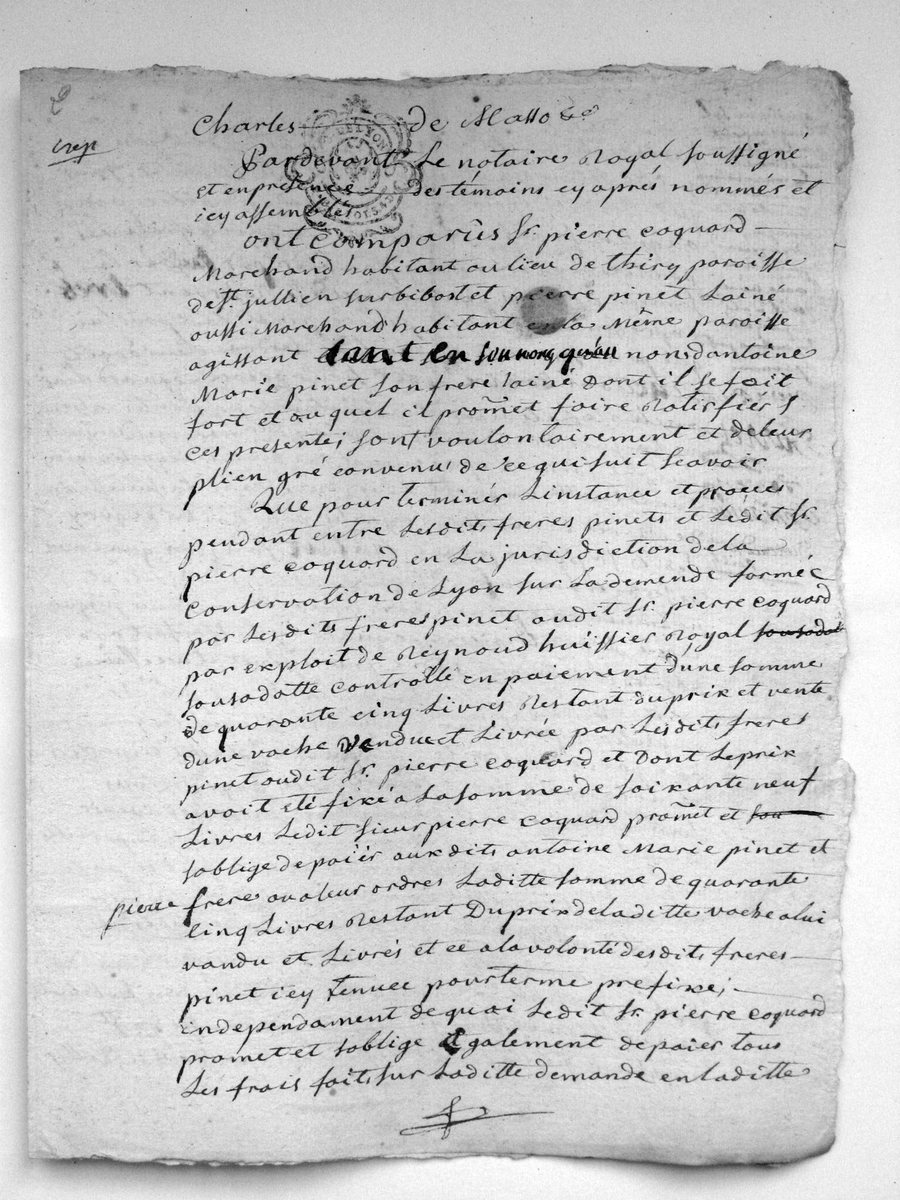 Charles de Masso &c
Pardevant Le notaire Royal soussigné
et en presence des témains cy aprés nommés et
icy assemblés
ont comparûs Sr. pierre coquard
Marchand habitant au lieu de thiry paroisse
de St. jullien sur bibost et pierre pinet Lainé
aussi Marchand habitant en la Même paroisse
agissant tant en son nom qu'au nons dantoine
Marie pinet son frere lainé Dont il se fait
fort et au quel il promet faire Ratisfier
ces presentes sont voulontairement et de leur
plien gré convenu de ce qui suit Scavoir
Que pour terminér Linstance et procés
pendant entre Lesdits freres pinets et Ledit Sr.
pierre coquard en La jurisdiction de la
Conservation de Lyon sur La demende formée
par Lesdits freres pinet audit Sr. pierre coquard
par exploit de Reynaud huissier Royal
sousadatte controllé en paiement dune somme
de quarante cinq Livres Restant du prix et vente
dune vache vendue et Livrée par Lesdits freres
pinet audit Sr. pierre coquard et Dont Leprix
avoit eté fixé a La somme de soixante neuf
Livres Ledit sieur pierre coquard promet et
soblige de païér aux dits antoine Marie pinet et
pierre frere ou a leur ordres Laditte somme de quarante
Cinq Livres Restant Du prix de laditte vache a lui
vandu et Livrés et ce a la volonté desdits freres
pinet icy tenuee pour terme prefixe;
independament de quai Ledit Sr. pierre coquard
promet et soblige Egalement de paier tous
Les frais faits sur Laditte demande en laditte